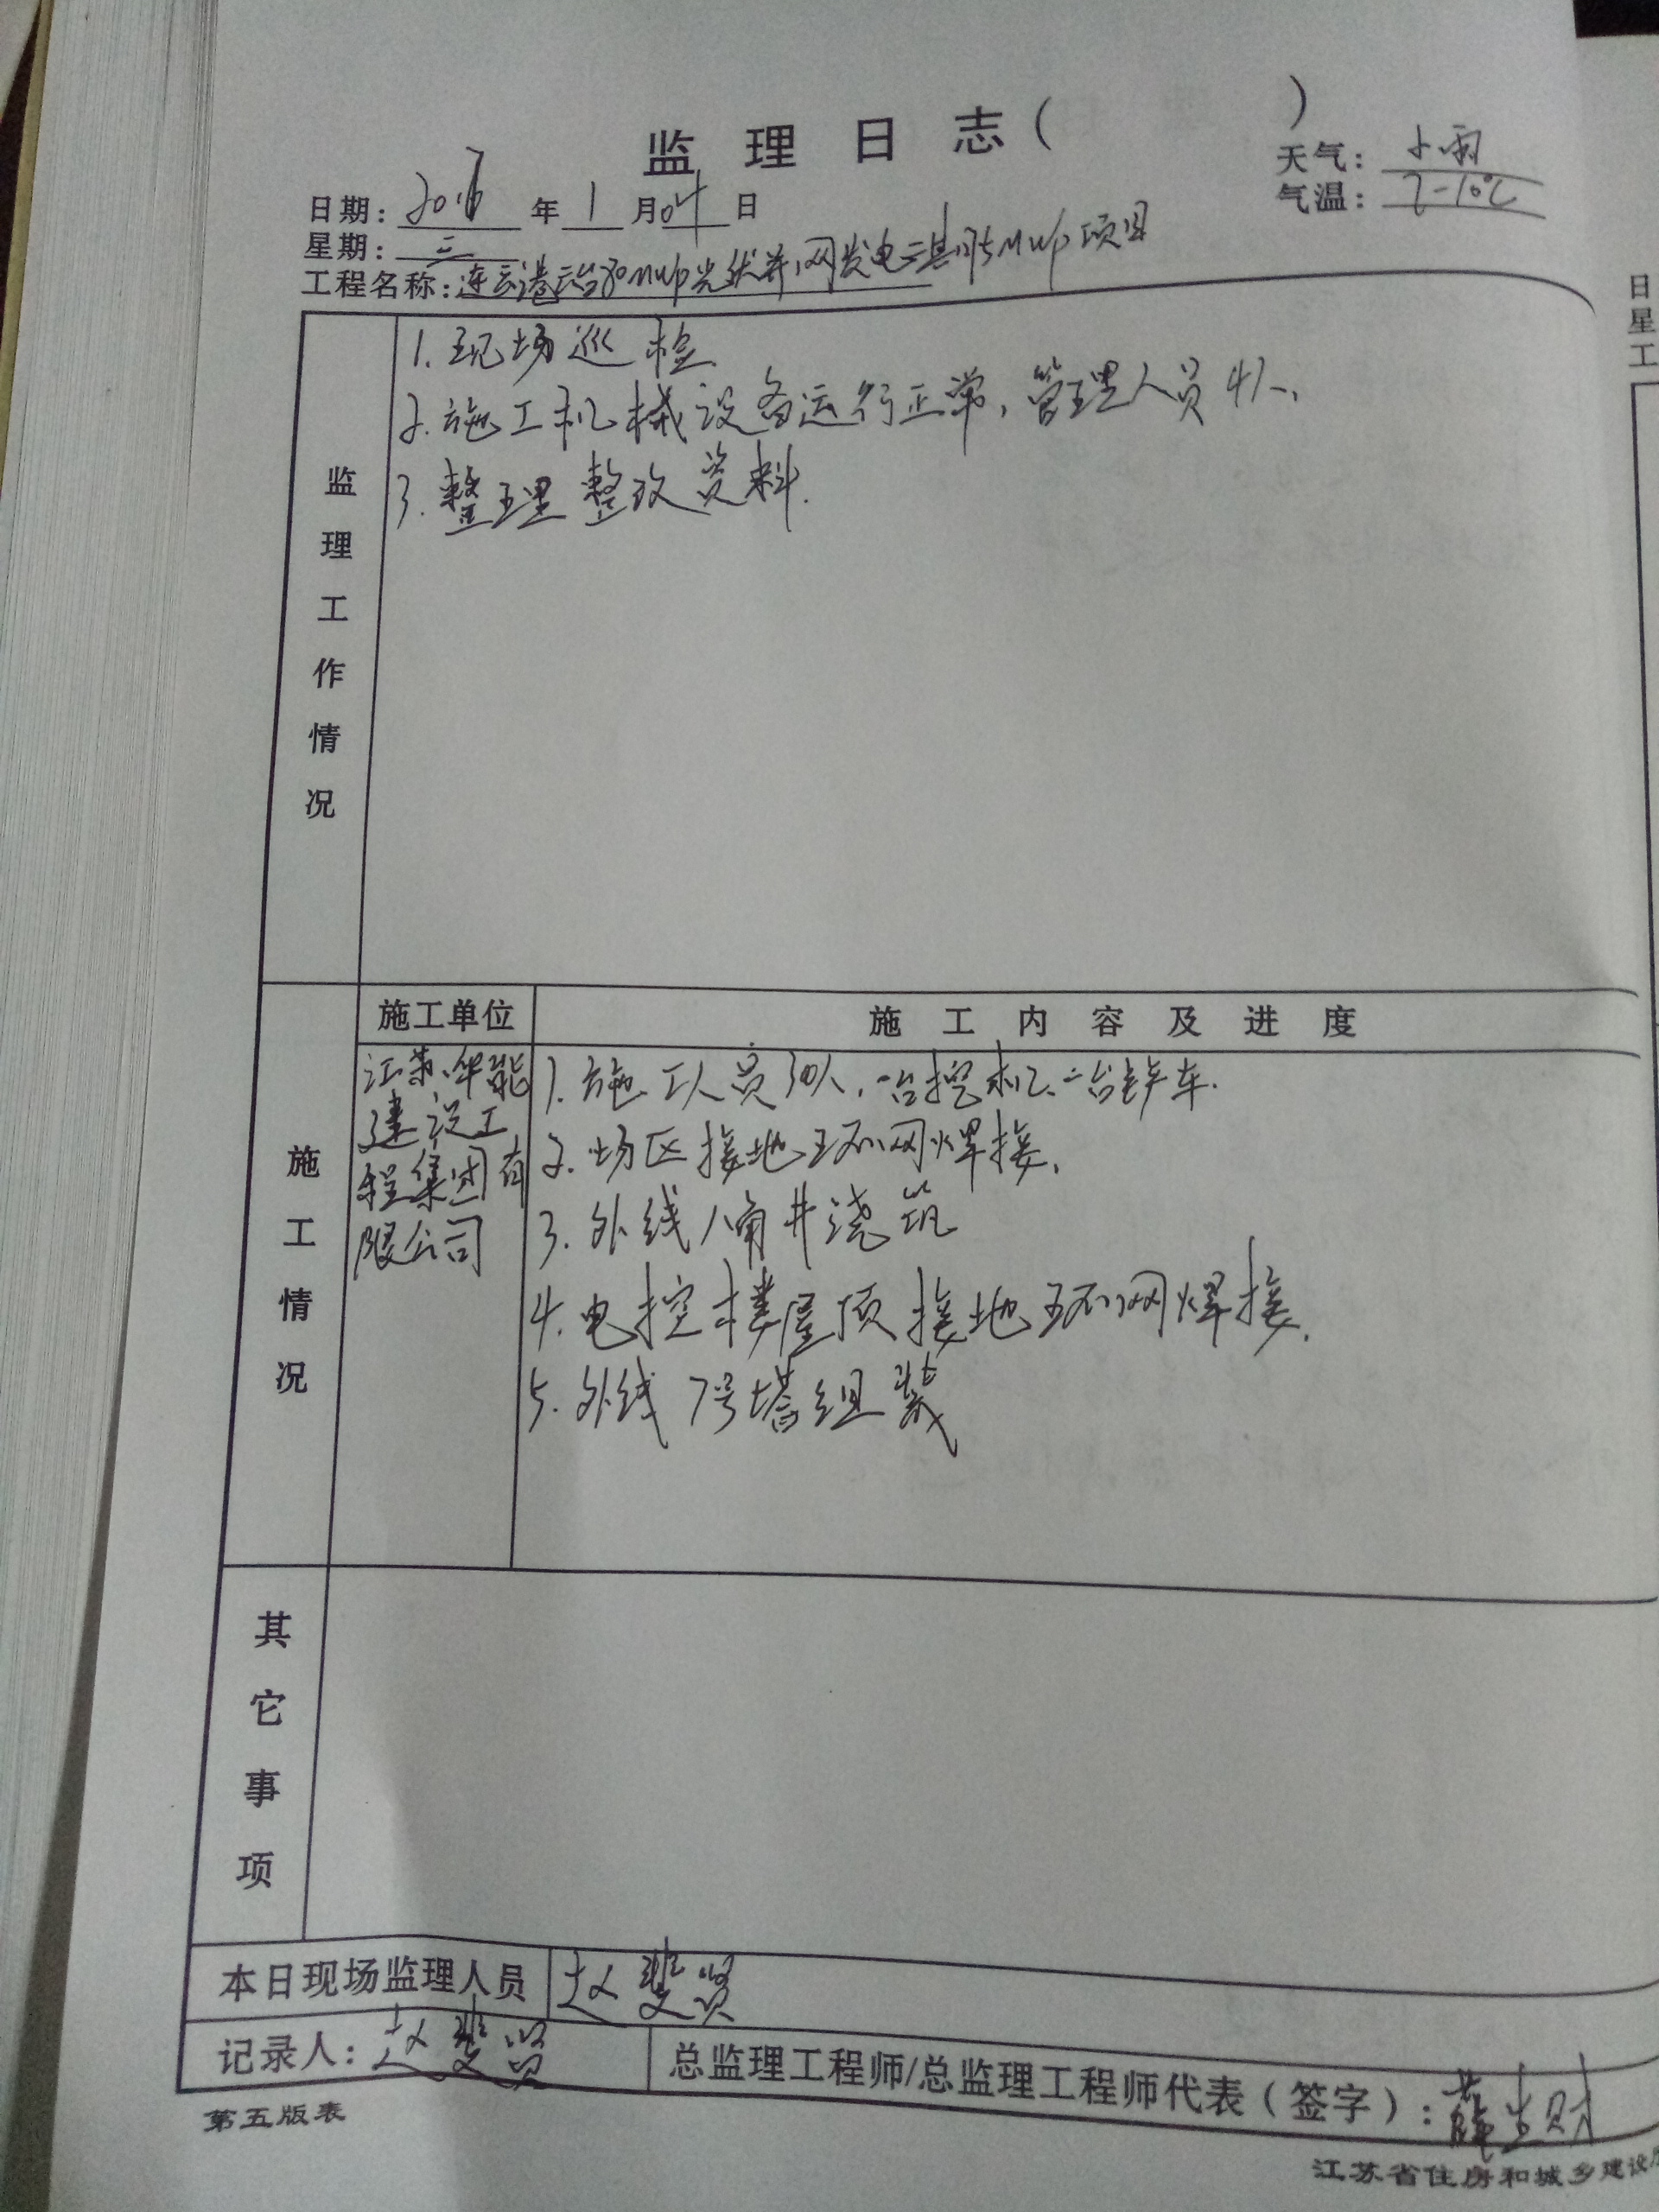 监理日志( )
天气: 小雨
日期: 2016年1月04日
气温: 7-10℃
星期: 三
工程名称: 连云港云台30MWp光伏并网发电二期5MWp项目
监理工作情况
1. 现场巡检.
2. 施工机械设备运行正常,管理人员4人,
3. 整理整改资料.
施工单位
施工内容及进度
施工情况
江苏华能
建设工
程集团有
限公司
1. 施工人员30人,一台挖机、二台铲车.
2. 场区接地环网焊接,
3. 外线八角井浇筑
4. 电控楼屋顶接地环网焊接.
5. 外线7号塔组装
其它事项
本日现场监理人员 赵 贤
记录人: 赵 贤
总监理工程师/总监理工程师代表(签字): 薛 财
第五版表
江苏省住房和城乡建设
日
星
工